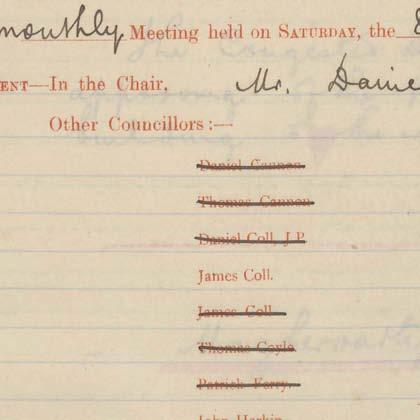 monthly Meeting held on Saturday, the
ENT—In the Chair, Mr.
Other Councillors:—
Daniel Cannon
Thomas Cannon
Daniel Coll, J.P.
James Coll.
James Coll
Thomas Coyle
Patrick Ferry.
John Harkin